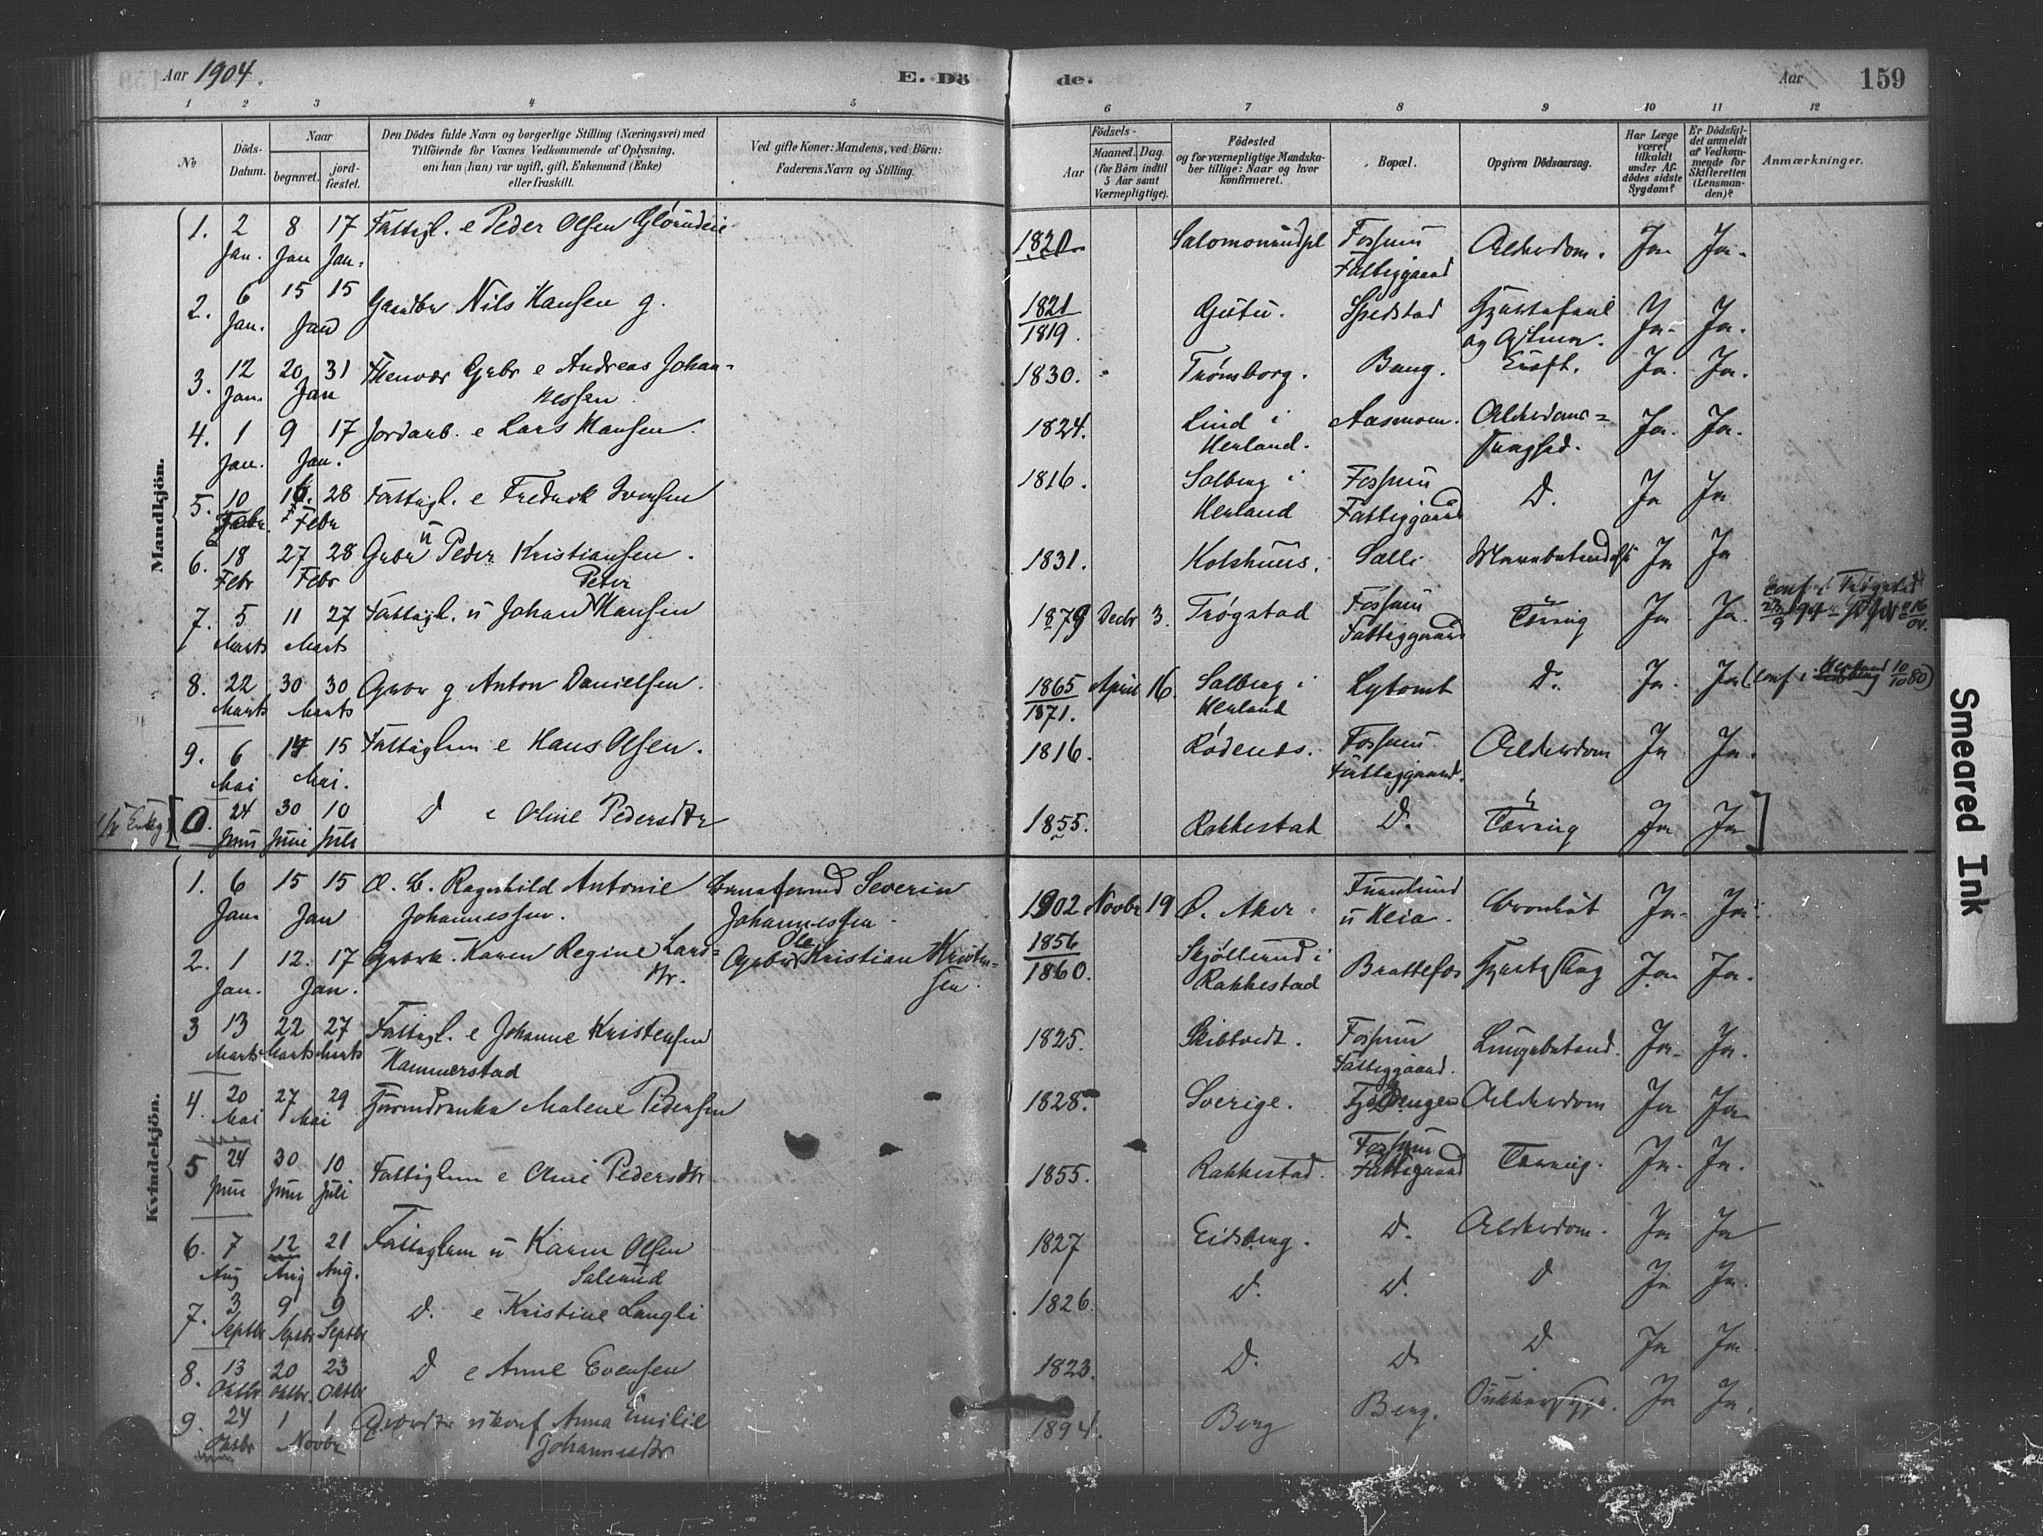 Aar 1904. E. Dö de. Aar 159
1 2 3 4 5 6 7 8 9 10 11 12
No
Döds-Datum.
Naar
begravet.
jord-fæstet.
Den Dödes fulde Navn og borgerlige Stilling (Næringsvei) med
Tilföiende for Voxnes Vedkommende af Oplysning,
om han (hun) var ugift, gift, Enkemand (Enke)
eller fraskilt.
Ved gifte Koner: Mandens, ved Börn:
Faderens Navn og Stilling.
Aar
Födsels-
Maaned. Dag.
(for Börn indtil
5 Aar samt
Værnepligtige).
Födested
og for værnepligtige Mandska-
ber tillige: Naar og hvor
konfirmeret.
Bopæl.
Opgiven Dödsaarsag.
Har Læge
været
tilkaldt
under Af-
dödes sidste
Sygdom?
Er Dödsfal-
det anmeldt
af Vedkom-
mende for
Skifteretten
(Lensman-
den)?
Anmærkninger.
Mandkjön.
1. 2 Jan. 8 Jan 17 Jan. Fattigl. e Peder Olsen 1820 Salomonrudpl Fossum Fattiggaard Alderdom. Ja Ja.
2. 6 Jan. 15 15 Jan Gaardbr Nils Hansen g. 1821 1819. Spedstad Hjertefeil og Astma. Ja. Ja.
3. 12 Jan. 20 31 Jan Gbr e Andreas Johan-
nessen. 1830. Trømborg. Baug. Kræft. Ja. Ja.
4. 1 Jan. 9 17 Jan. Jordarb. e Lars Hansen. 1824. Lind i Herland. Aasmoen. Alderdoms= Ja. Ja.
5. 10 Febr 16. 28 Febr Fattigl. e Fredrik Iversen 1816. Solberg i Herland Fossum Fattiggaard D. Ja Ja
6. 18 Febr 27 28 Febr Gbr u Peder Kristiansen. 1831. Kolshuus. Salli Ja Ja
7. 5 Marts 11 27 Marts Fattigl. u Johan Peter Hansen 1879 Decbr 3. Trøgstad Fossum Fattiggaard Tæring Ja. Ja. Conf. i Trøgstad
8. 22 Marts 30 30 Marts Gbr g Anton Danielsen. 1865 1871. April 16. Solberg i Herland Lytomt D. Ja. Ja (Conf i Herland 10/10 80)
9. 6 Mai 14 15 Mai. Fattiglem e Hans Olsen. 1816. Rødenes. Fossum Fattiggaard. Alderdom Ja Ja.
24 Juni 30 Juni 10 Juli D e Oline Pedersdtr 1855. Rakkestad D. Tæring Ja Ja
Kvindekjön.
1. 6 Jan 15 15 Jan Æ. B. Ragnhild Antonie Johannessen. Severin Johannessen. 1902 Novbr 19 Ø. Aker. u Heia. Bronkit Ja. Ja.
2. 1 Jan. 12. 17 Jan. Gbrk. Karen Regine Lars=
dtr. Gbr Ole Kristian Kristen-
sen. 1856 1860. Skjøllerud i Rakkestad Brattefos Hjerteslag Ja. Ja.
3 13 Marts 22 Marts 27 Marts Fattigl. e Johanne Kristensen
Hammerstad 1825. Skibtvedt. Fossum Fattiggaard. Lungebetænd. Ja. Ja.
4. 20 Mai 27 29 Mai Malene Pedersen 1828. Sverige. Alderdom Ja Ja
5 24 Juni 30 Juni 10 Juli Fattiglem e Oline Pedersdtr 1855. Rakkestad. Fossum Fattiggaard Tæring. Ja. Ja.
6. 7 Aug 12 Aug 21 Aug. Fattiglem u Karen Olsen
Salerud 1827 Eidsberg. D. Alderdom. Ja Ja
7. 3 Septbr 9 Septbr 9 Septbr D. e Kristine Langli 1826. D. D. D Ja Ja.
8. 13 Oktbr 20 Oktbr. 23 Oktbr D e Anne Evensen 1823. D. D. D Ja Ja.
9. 24 Oktbr 1 1 Novbr ukonf Anna Emilie
Johannesdtr 1894. Berg Berg. Sukkersyge. Ja Ja.
Smeared Ink